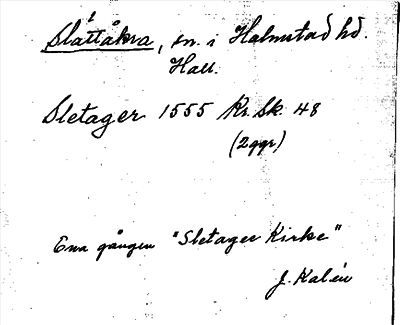 Slättåkra, sn. i Halmstad hd.
Hall.
Sletager 1555 Kr. Sk. 48
(2ggr)
Ena gången "Sletager Kirke"
J. Kalén